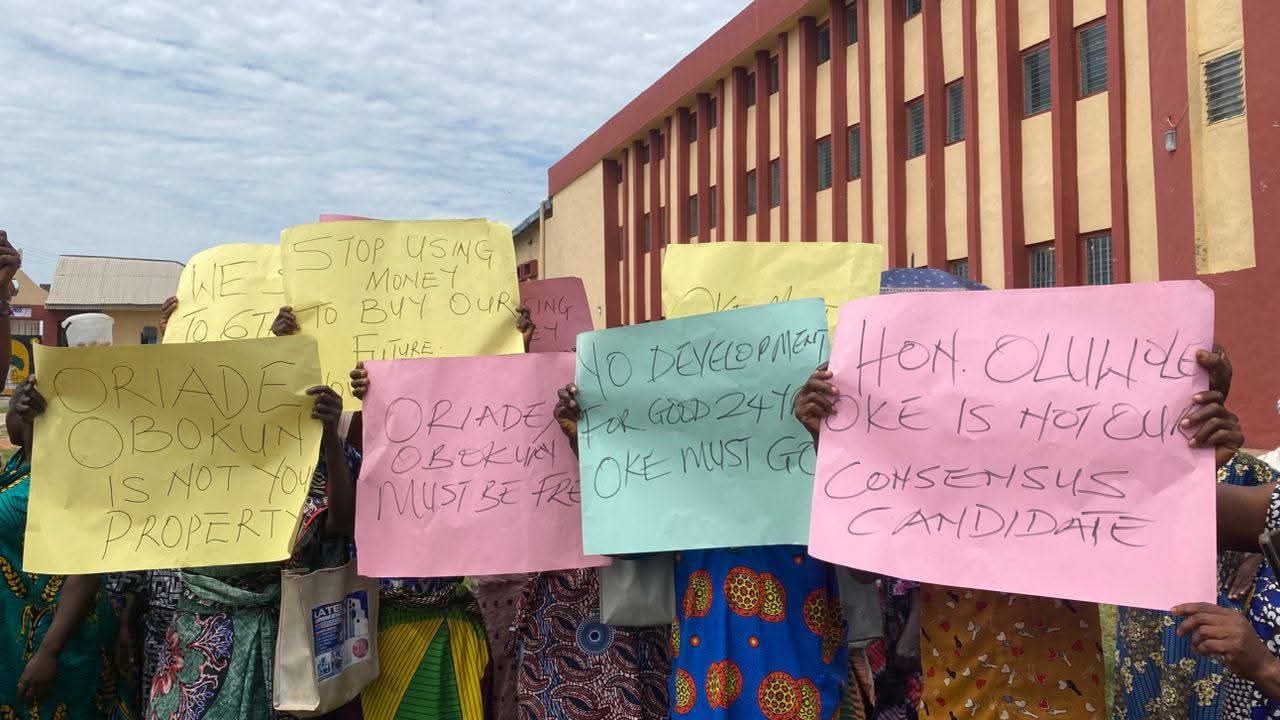 WE S
TO 6T
STOP USING
MONEY
TO BUY OUR
FUTURE.
ING
EY
OKE M
ORIADE
OBOKUN
IS NOT YOU
PROPERTY
ORIADE
OBOKUN
MUST BE FRE
NO DEVELOPMENT
FOR GOOD 24 Y
OKE MUST GO
HON. OLUWOLE
OKE IS NOT OUR
CONSENSUS
CANDIDATE
LATE